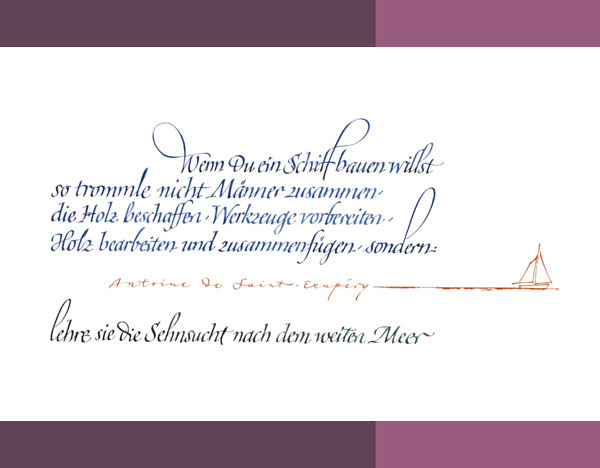 Wenn Du ein Schiff bauen willst
so trommle nicht Männer zusammen,
die Holz beschaffen, Werkzeuge vorbereiten,
Holz bearbeiten und zusammenfügen, sondern:
Antoine de Saint-Exupéry
lehre sie die Sehnsucht nach dem weiten Meer